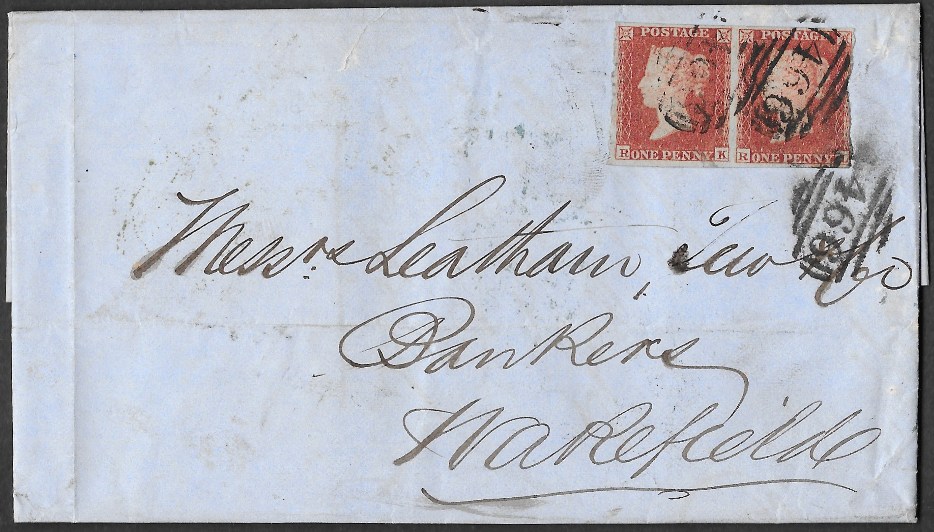 POSTAGE POSTAGE
R ONE PENNY K R ONE PENNY
466
Messrs Leatham, Tew & Co
Bankers
Wakefield